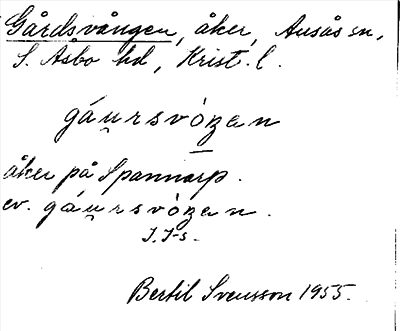 Gårdsvången, åker, Ausås sn,
S. Åsbo hd, Krist. l.
gáu̯rsvòŋ̱en
åker på Spannarp.
ev. gáu̯rsvòŋen.
J. J-s.
Bertil Svensson 1955.